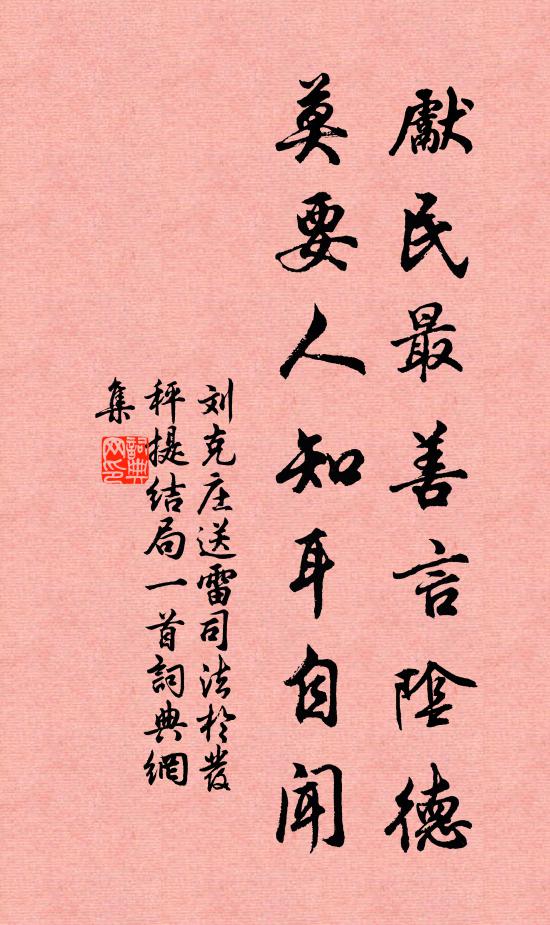 獻民最善言陰德
莫要人知耳自聞
刘克庄送雷司法柃發
秤提结局一首詞典網
集
詞典
网印